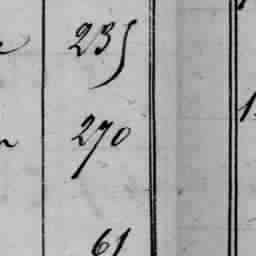 235
270
61